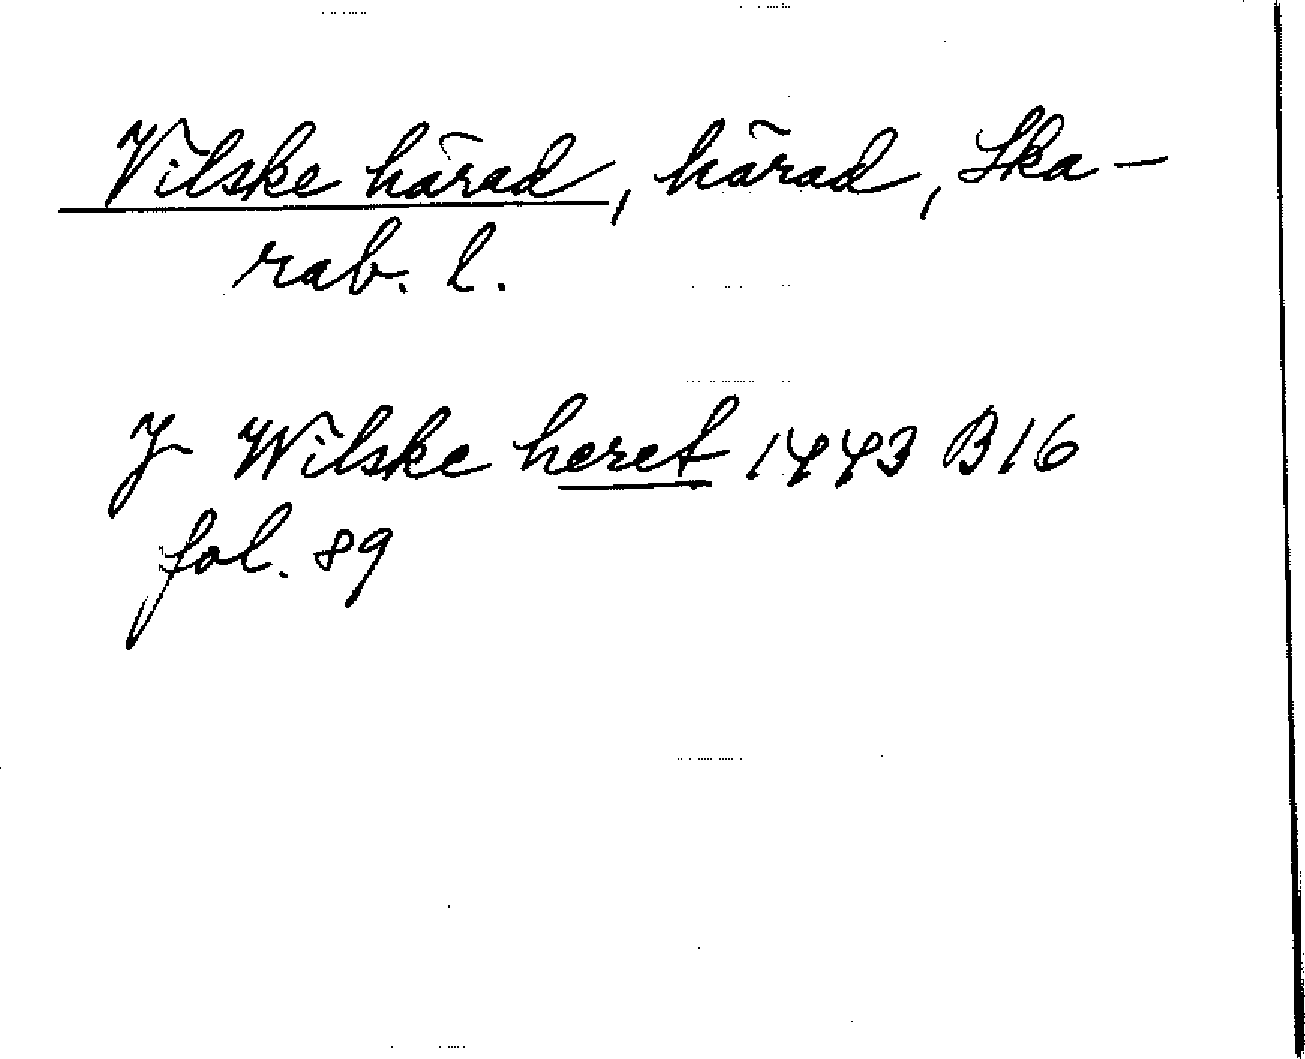 Vilske härad, härad, Ska-
rab. l.
J Wilske heret 1443 B16
fol. 89